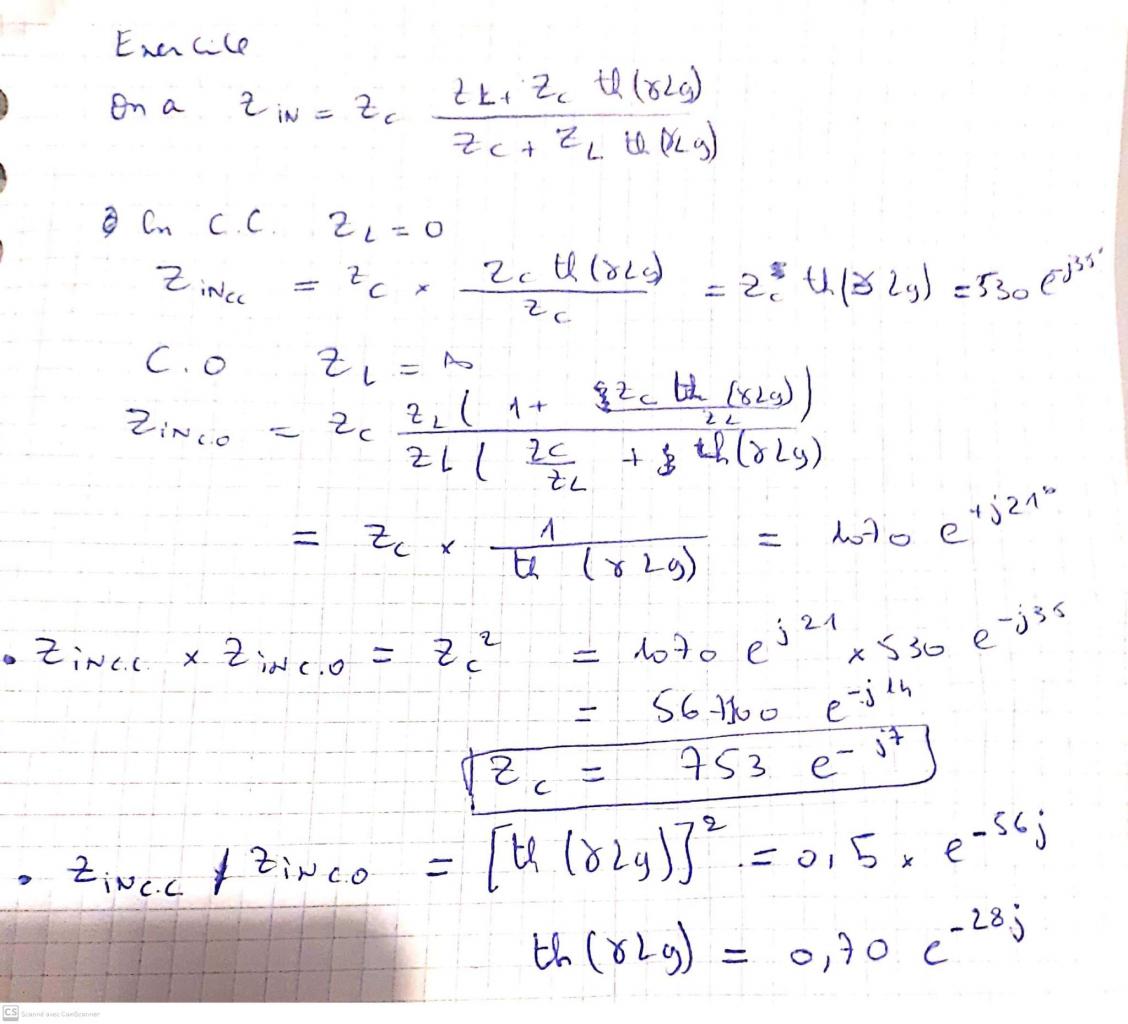 Exercice
On a Z_IN = Z_c (Z_L + Z_c th(γLg)) / (Z_c + Z_L th(γLg))
En C.C. Z_L = 0
Z_INCC = Z_c × (Z_c th(γLg)) / Z_c = Z_c th(γLg) = 530 e^-j35°
C.O Z_L = ∞
Z_INC.O = Z_c (Z_L (1 + Z_c th(γLg) / Z_L)) / (Z_L (Z_c / Z_L + th(γLg)
= Z_c × 1 / th(γLg) = 1070 e^+j21°
• Z_INC.C × Z_INC.O = Z_c² = 1070 e^j21 × 530 e^-j35
= 567100 e^-j14
Z_c = 753 e^-j7
• Z_INC.C / Z_INC.O = [th(γLg)]² = 0,5 × e^-56j
th(γLg) = 0,70 e^-28j
CS Scanné avec CamScanner